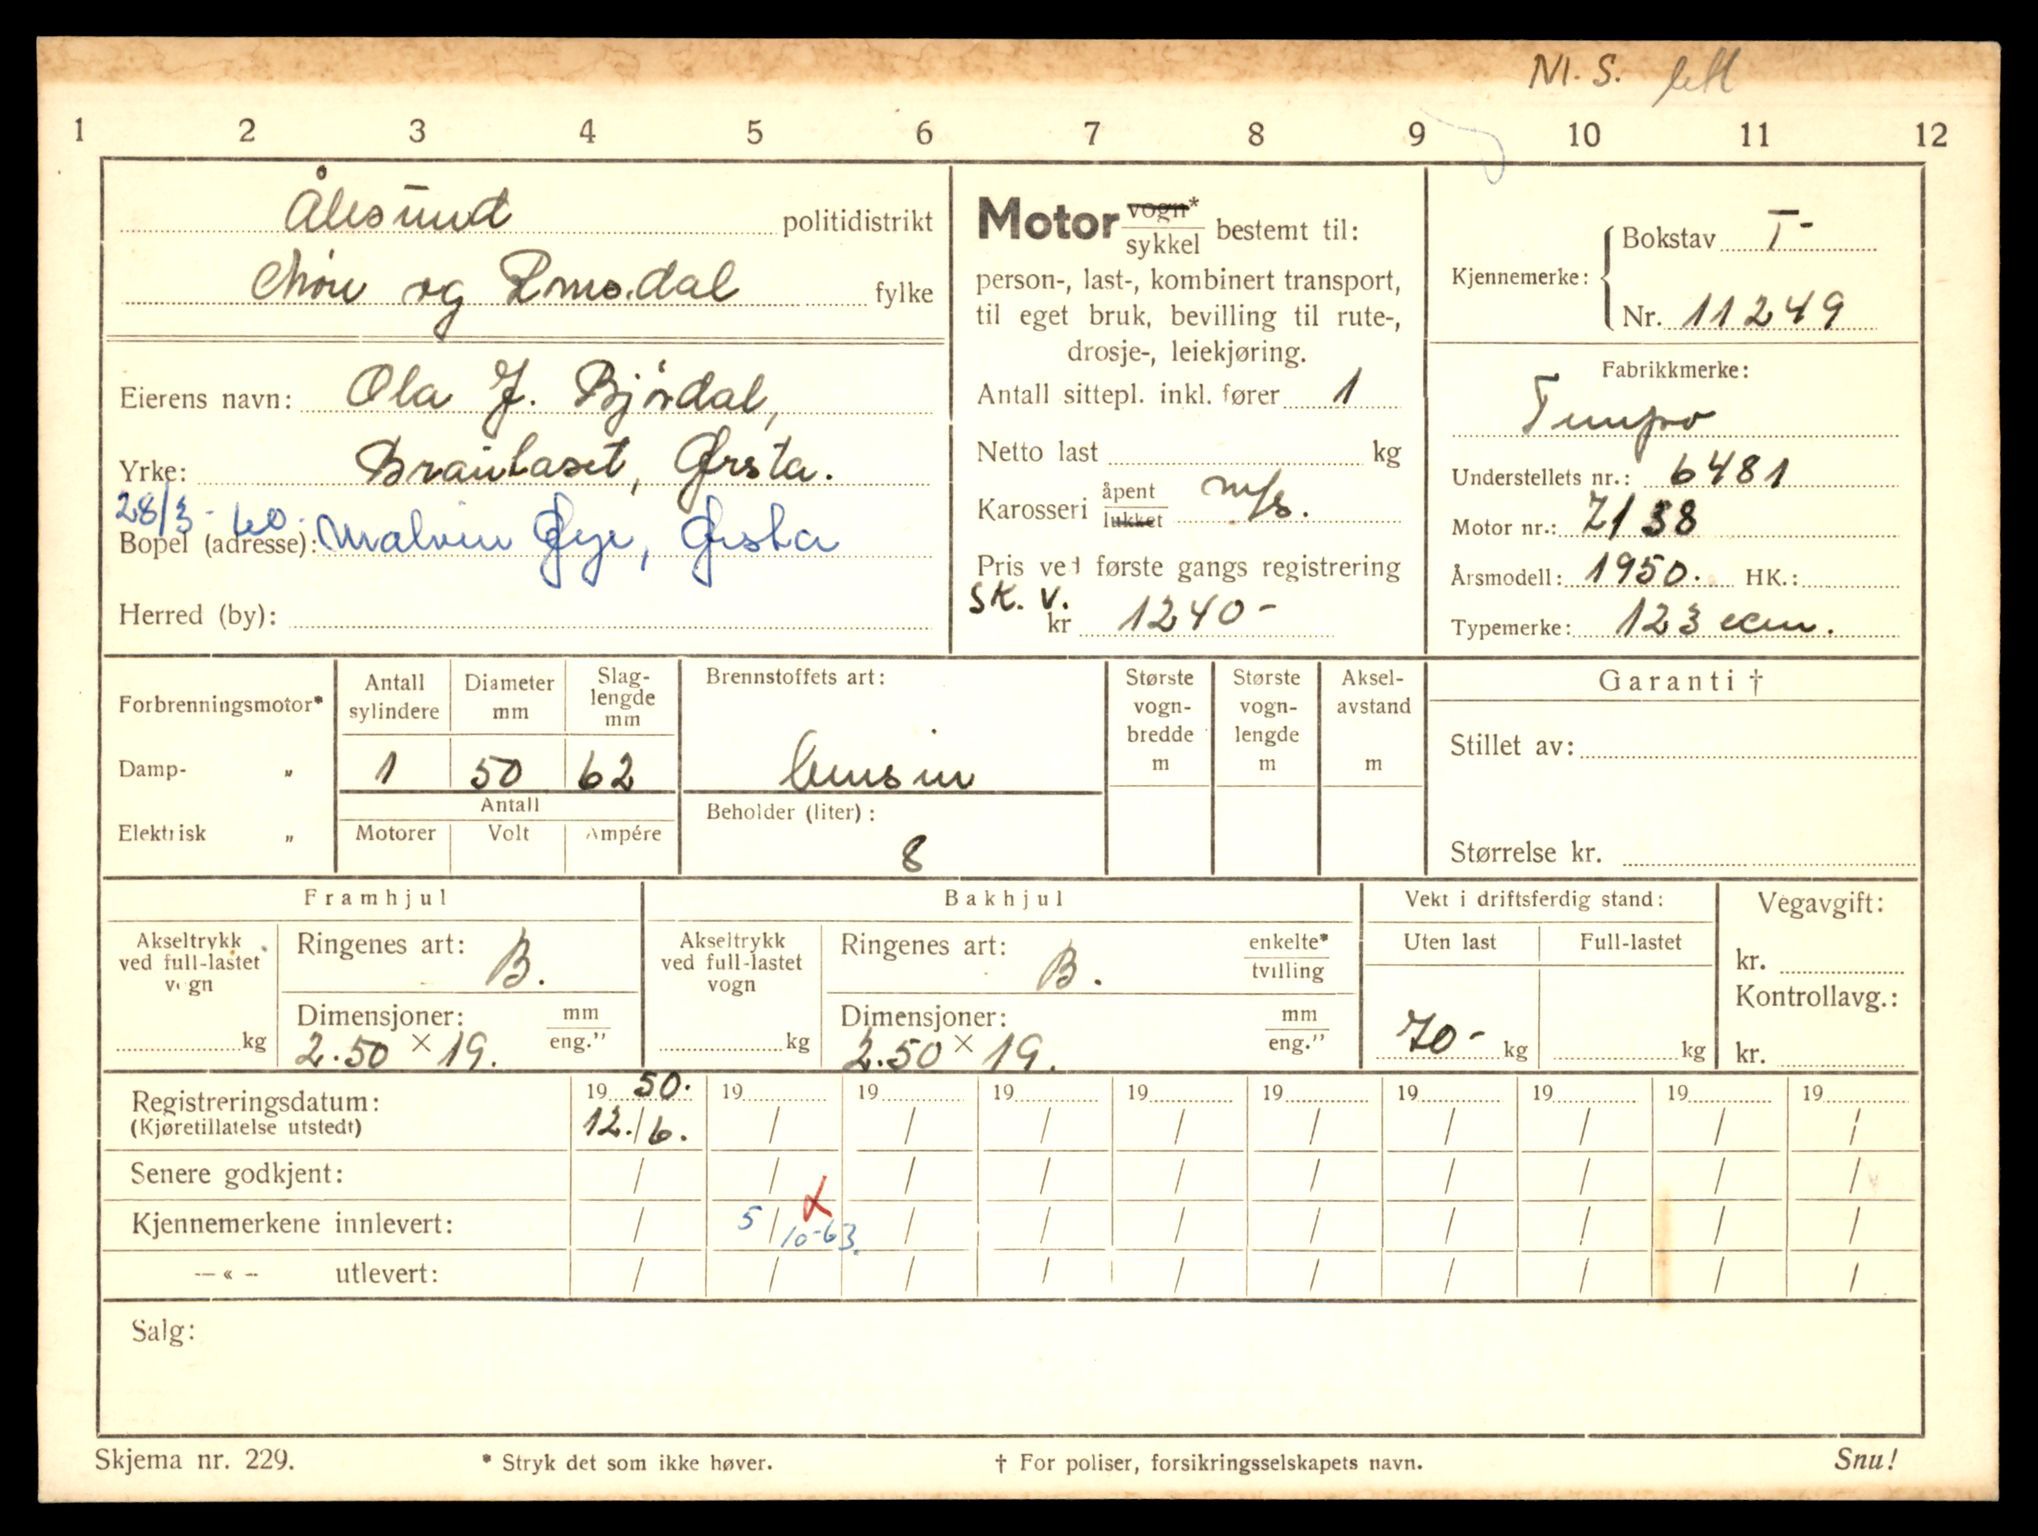 M. S. lett
1 2 3 4 5 6 7 8 9 10 11 12
Ålesund politidistrikt
Møre og Romsdal fylke
Eierens navn: Ola J. Bjørdal,
Yrke: Ørsta.
28/3-60. Malvin Øye, Ørsta
Bopel (adresse):
Herred (by):
Motor vogn* / sykkel bestemt til:
person-, last-, kombinert transport,
til eget bruk, bevilling til rute-,
drosje-, leiekjøring.
Antall sittepl. inkl. fører 1
Netto last kg
Karosseri åpent / lukket m/s.
Pris ved første gangs registrering
SK. V.
kr 1240-
Kjennemerke: Bokstav T-
Nr. 11249
Fabrikkmerke:
Tempo
Understellets nr.: 6481
Motor nr.: 7138
Årsmodell: 1950. HK.:
Typemerke: 123 ccm.
Forbrenningsmotor*
Damp- „
Elektrisk „
Antall sylindere Diameter mm Slag-lengde mm
1 50 62
Antall
Motorer Volt Ampére
Brennstoffets art:
Bensin
Beholder (liter):
8
Største vogn-bredde m
Største vogn-lengde m
Aksel-avstand m
Garanti †
Stillet av:
Størrelse kr.
Framhjul
Akseltrykk ved full-lastet vogn
kg
Ringenes art: B.
Dimensjoner: mm / eng."
2.50 × 19.
Bakhjul
Akseltrykk ved full-lastet vogn
kg
Ringenes art: B. enkelte* / tvilling
Dimensjoner: mm / eng."
2.50 × 19.
Vekt i driftsferdig stand:
Uten last Full-lastet
70- kg kg
Vegavgift:
kr.
Kontrollavg.:
kr.
Registreringsdatum: 19 50. 19 19 19 19 19 19 19 19 19
(Kjøretillatelse utstedt) 12./6. / / / / / / / / /
Senere godkjent: / / / / / / / / / /
Kjennemerkene innlevert: / 5/10-63. x / / / / / / / /
— « — utlevert: / / / / / / / / / /
Salg:
Skjema nr. 229. * Stryk det som ikke høver. † For poliser, forsikringsselskapets navn. Snu!